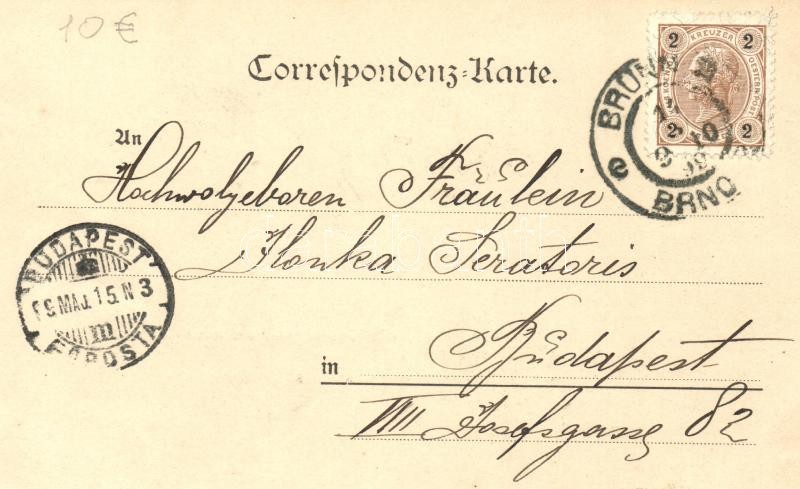 10 €
Correspondenz-Karte.
2 KREUZER 2
OESTERR. POST
2 2
BRÜNN
BRNO
An
Hochwolgeboren Fräulein
Ilonka Seratoris
BUDAPEST
99 MAJ. 15. N 3
m
FŐPOSTA
in Budapest
VIII Josefsgasse 82